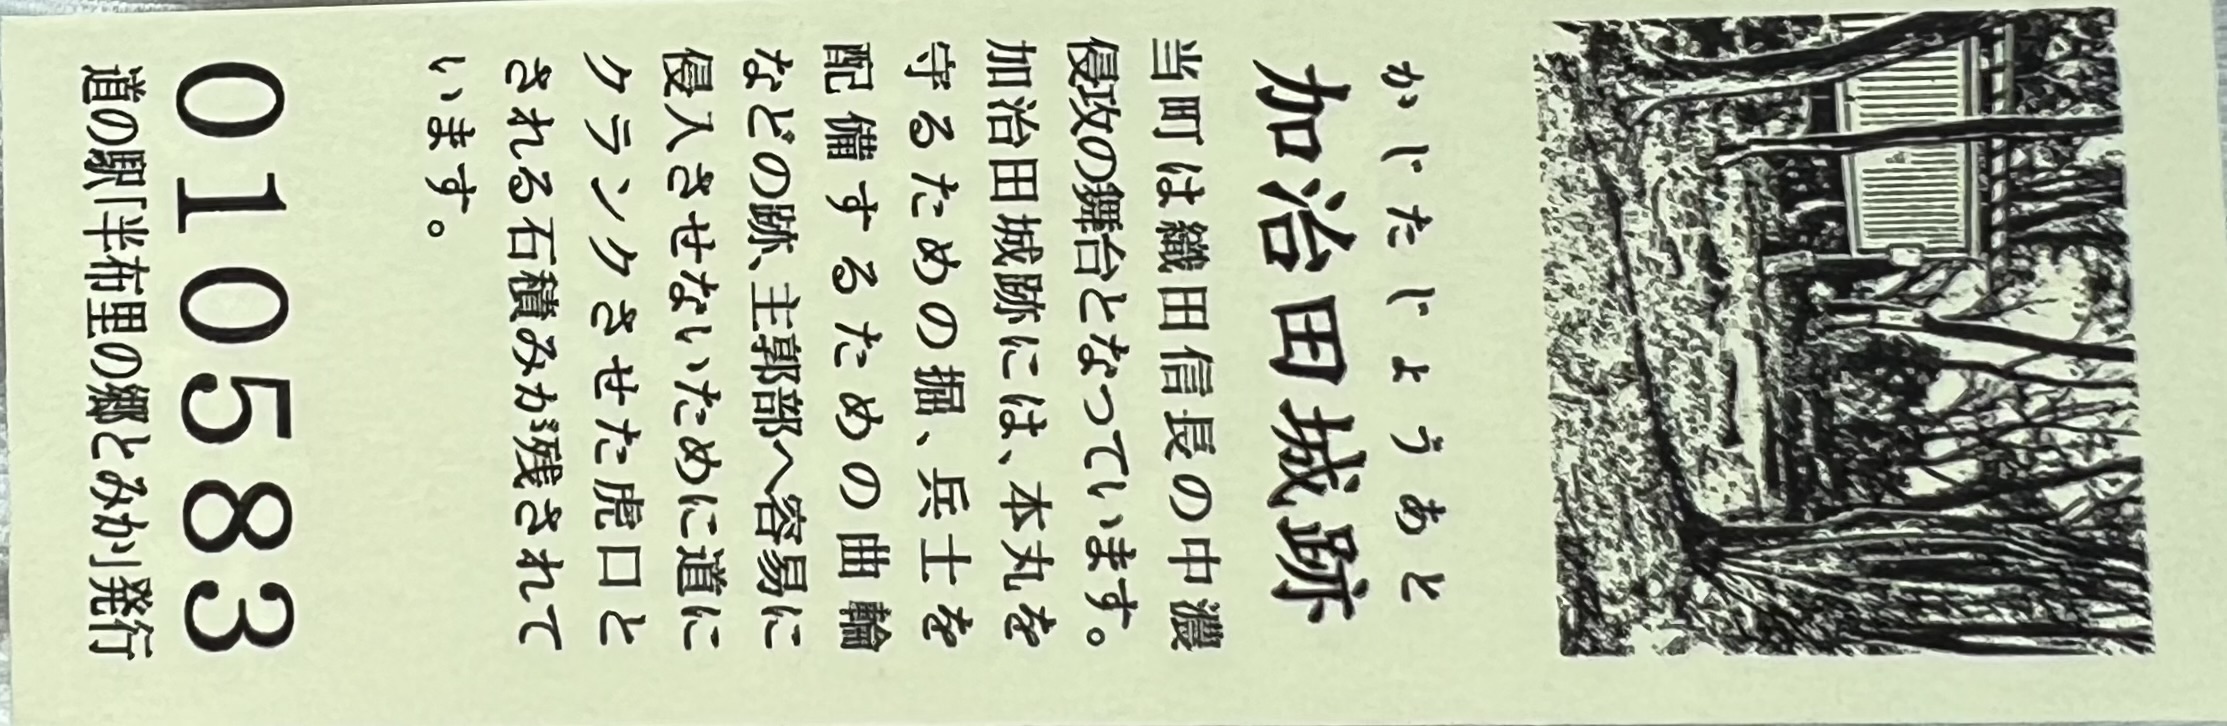 かじたじょうあと
加治田城跡
当町は織田信長の中濃
侵攻の舞台となっています。
加治田城跡には、本丸を
守るための堀、兵士を
配備するための曲輪
などの跡、主郭部へ容易に
侵入させないために道に
クランクさせた虎口と
される石積みが残されて
います。
010583
道の駅「半布里の郷とみか」発行